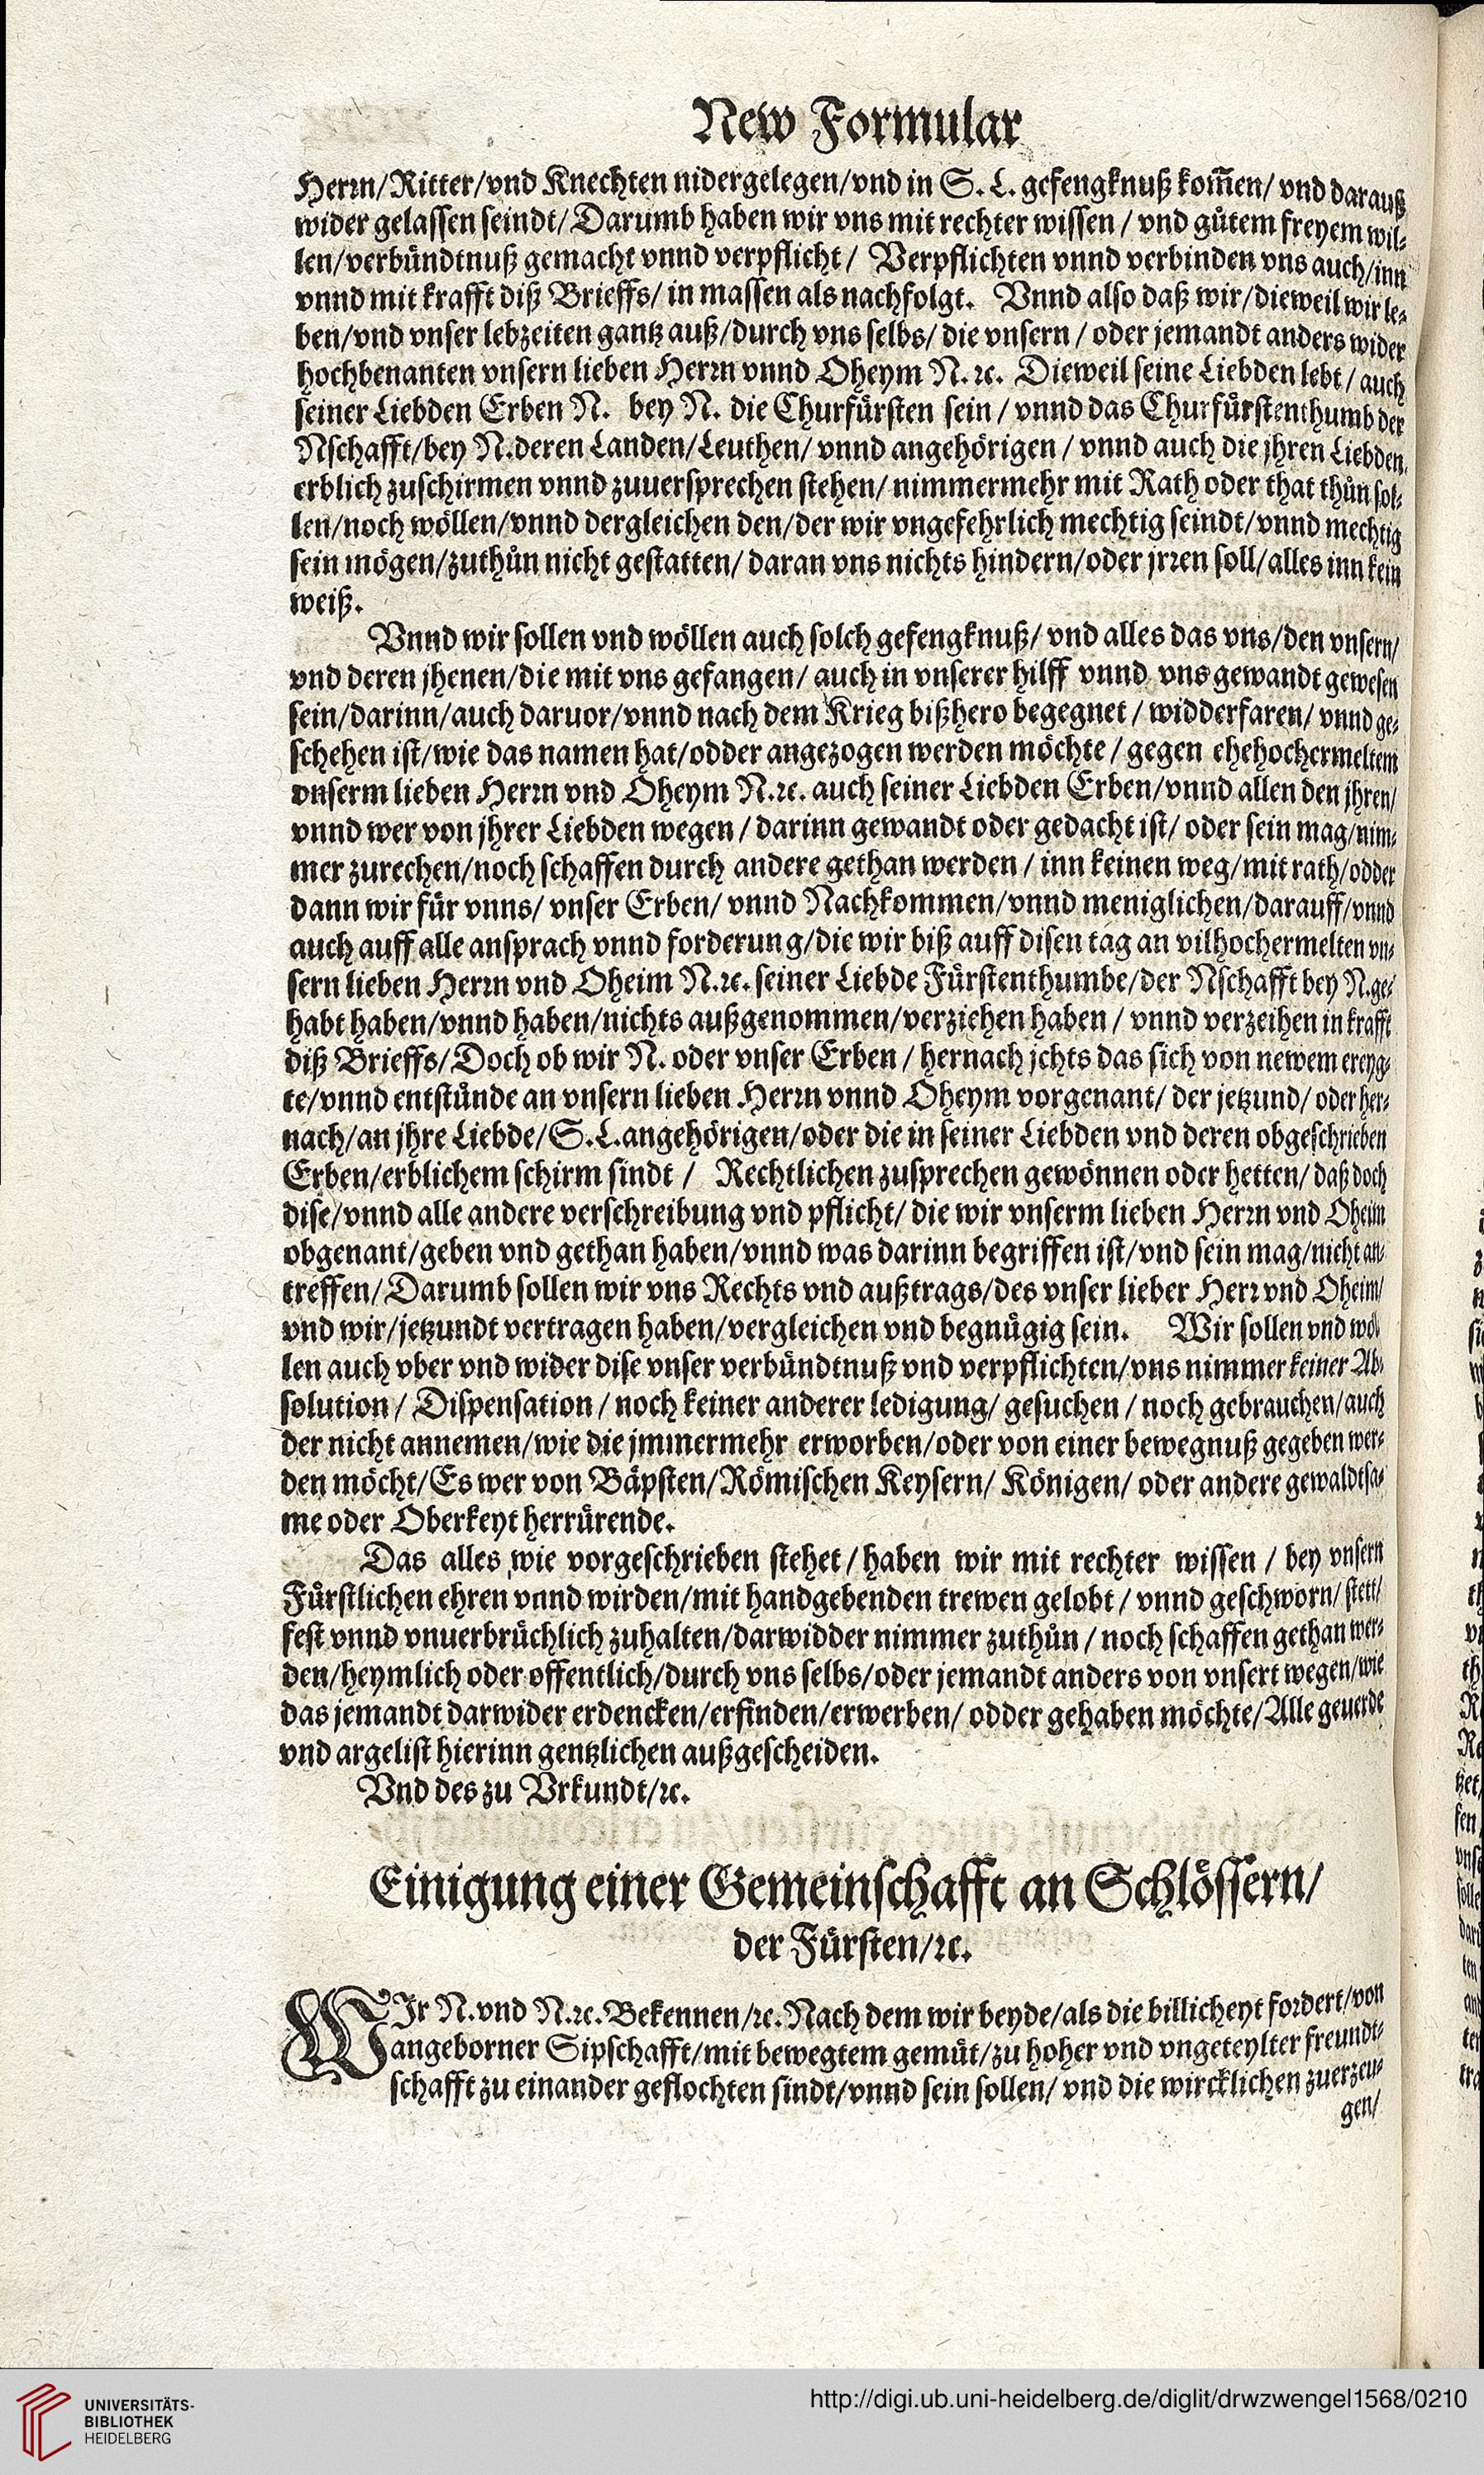 New Formular
Herrn/Ritter/vnd Knechten nidergelegen/vnd in S. L. gefengknuß kom̃en/ vnd darauß
wider gelassen seindt/ Darumb haben wir vns mit rechter wissen / vnd gůtem freyem wil-
len/verbündtnuß gemacht vnnd verpflicht / Verpflichten vnnd verbinden vns auch/inn
vnnd mit krafft diß Brieffs/ in massen als nachfolgt. Vnnd also daß wir/dieweil wir le-
ben/vnd vnser lebzeiten gantz auß/durch vns selbs/ die vnsern / oder jemandt anders wider
hochbenanten vnsern lieben Herrn vnnd Oheym N. ꝛc. Dieweil seine Liebden lebt / auch
seiner Liebden Erben N. bey N. die Churfürsten sein / vnnd das Churfürstenthumb der
Nschafft/bey N.deren Landen/Leuthen/ vnnd angehörigen / vnnd auch die jhren Liebden
erblich zuschirmen vnnd zuuersprechen stehen/ nimmermehr mit Rath oder that thůn sol-
len/noch wöllen/vnnd dergleichen den/der wir vngefehrlich mechtig seindt/vnnd mechtig
sein mögen/zuthůn nicht gestatten/ daran vns nichts hindern/oder jrren soll/alles inn kein
weiß.
Vnnd wir sollen vnd wöllen auch solch gefengknuß/ vnd alles das vns/den vnsern/
vnd deren jhenen/die mit vns gefangen/ auch in vnserer hilff vnnd vns gewandt gewesen
sein/darinn/auch daruor/vnnd nach dem Krieg bißhero begegnet / widderfaren/ vnnd ge-
schehen ist/wie das namen hat/odder angezogen werden möchte / gegen ehehochermeltem
vnserm lieben Herrn vnd Oheym N.ꝛc. auch seiner Liebden Erben/vnnd allen den jhren/
vnnd wer von jhrer Liebden wegen / darinn gewandt oder gedacht ist/ oder sein mag/nim-
mer zurechen/noch schaffen durch andere gethan werden / inn keinen weg/mit rath/odder
dann wir für vnns/ vnser Erben/ vnnd Nachkommen/vnnd meniglichen/darauff/vnnd
auch auff alle ansprach vnnd forderung/die wir biß auff disen tag an vilhochermelten vn-
sern lieben Herrn vnd Oheim N.ꝛc. seiner Liebde Fürstenthumbe/der Nschafft bey N.ge-
habt haben/vnnd haben/nichts außgenommen/verziehen haben / vnnd verzeihen in krafft
diß Brieffs/Doch ob wir N. oder vnser Erben / hernach jchts das sich von newem ereyg-
te/vnnd entstünde an vnsern lieben Herrn vnnd Oheym vorgenant/ der jetzund/ oder her-
nach/an jhre Liebde/S.L.angehörigen/oder die in seiner Liebden vnd deren obgeschrieben
Erben/erblichem schirm sindt / Rechtlichen zusprechen gewönnen oder hetten/ daß doch
dise/vnnd alle andere verschreibung vnd pflicht/ die wir vnserm lieben Herrn vnd Oheim
obgenant/geben vnd gethan haben/vnnd was darinn begriffen ist/vnd sein mag/nicht an-
treffen/Darumb sollen wir vns Rechts vnd außtrags/des vnser lieber Herr vnd Oheim/
vnd wir/jetzundt vertragen haben/vergleichen vnd begnügig sein. Wir sollen vnd wöl
len auch vber vnd wider dise vnser verbündtnuß vnd verpflichten/vns nimmer keiner Ab-
solution / Dispensation / noch keiner anderer ledigung/ gesuchen / noch gebrauchen/auch
der nicht annemen/wie die jmmermehr erworben/oder von einer bewegnuß gegeben wer-
den möcht/Es wer von Bäpsten/Römischen Keysern/ Königen/ oder andere gewaldtsa-
me oder Oberkeyt herrürende.
Das alles wie vorgeschrieben stehet / haben wir mit rechter wissen / bey vnsern
Fürstlichen ehren vnnd wirden/mit handgebenden trewen gelobt / vnnd geschworn/ stett/
fest vnnd vnuerbrüchlich zuhalten/darwidder nimmer zuthůn / noch schaffen gethan wer-
den/heymlich oder offentlich/durch vns selbs/oder jemandt anders von vnsert wegen/wie
das jemandt darwider erdencken/erfinden/erwerben/ odder gehaben möchte/Alle geuerde
vnd argelist hierinn gentzlichen außgescheiden.
Vnd des zu Vrkundt/ꝛc.
Einigung einer Gemeinschafft an Schlössern/
der Fürsten/ꝛc.
WIr N.vnd N.ꝛc.Bekennen/ꝛc.Nach dem wir beyde/als die billicheyt fordert/von
angeborner Sipschafft/mit bewegtem gemüt/zu hoher vnd vngeteylter freundt-
schafft zu einander geflochten sindt/vnnd sein sollen/ vnd die wircklichen zuerzeu-
gen/
UNIVERSITÄTS-
BIBLIOTHEK
HEIDELBERG
http://digi.ub.uni-heidelberg.de/diglit/drwzwengel1568/0210